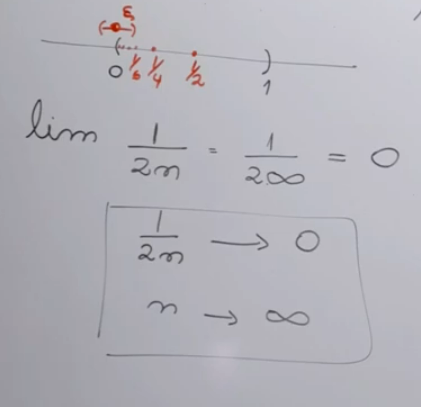 ε
( )
( )
0 1/6 1/4 1/2 1
lim 1/2n = 1/2∞ = 0
1/2n → 0
n → ∞